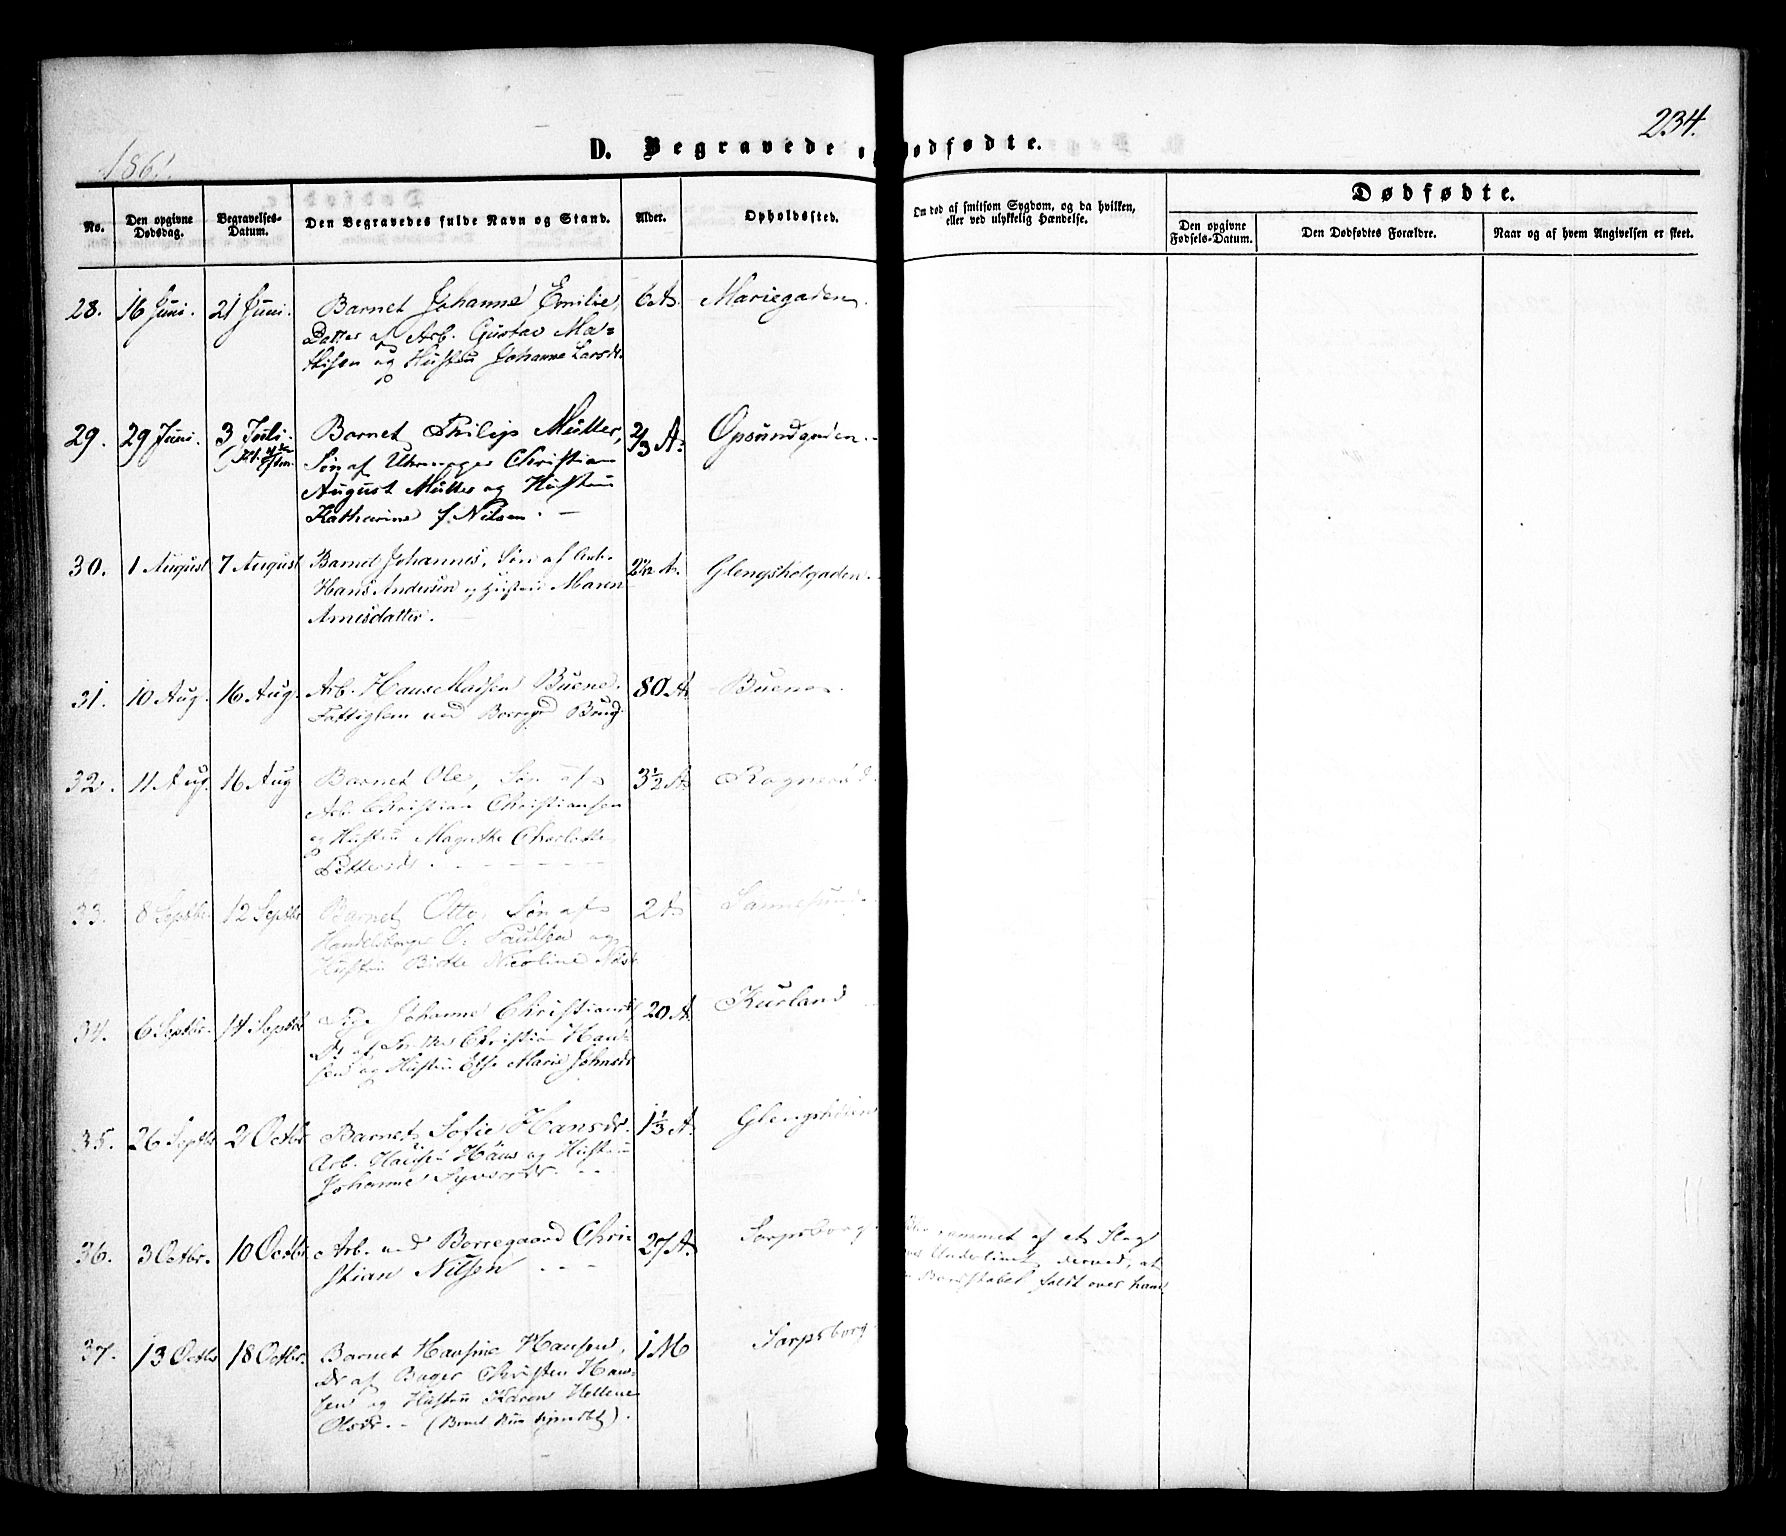 234.
1861.
D. Begravede o dødfødte.
Dødfødte.
No.
Den opgivne Dødsdag.
Begravelses-Datum.
Den Begravedes fulde Navn og Stand.
Alder.
Opholdssted.
Om død af smitsom Sygdom, og da hvilken, eller ved ulykkelig Hændelse.
Den opgivne Fødsels-Datum.
Den Dødfødtes Forældre.
Naar og af hvem Angivelsen er skeet.
28. 16 Juni. 21 Juni. Barnet Johanne Emilie, 6 A. Mariegaden.
Datter af Arb. Gustav Ma-
thisen og Hustru Johanne Larsdr.
29. 29 Juni. 3 Juli. Barnet Philip Müller, 2/3 A. Opsundgaden.
Søn af Uhrmager Christian
August Müller og Hustru
Katharine f. Nilsen.
30. 1 August 7 August Barnet Johannes, Søn af Arb. 2 1/2 A. Glengsholgaden.
Hans Andersen og Hustru Maren
Arnesdatter.
31. 10 Aug. 16 Aug. Arb. Hans Buene. 80 A. Buene.
Fattiglem ved Borregd Brug
32. 11 Aug. 16 Aug Barnet Ole, Søn af 3 1/2 A.
Arb. Christian Christiansen
og Hustru Magrethe Charlotte
Pettersdr.
33. 8 Septbr. 12 Septbr Barnet Otto, Søn af 2 A. Sannesund
Handelsborger O. Paulsen og
Hustru Birthe Nicoline
34. 6 Septbr. 14 Septbr Pige Johanne Christiansdr 20 A. Kurland
Dr af Christian Han-
sen og Hustru Else Marie Johnsdr
35. 26 Septbr 2 Octbr. Barnet Sofie Hansdr. 1 1/3 A.
Arb. Hans og Hustru
Johanne Syversdr.
36. 3 Octbr. 10 Octbr. Arb. ved Borregaard Chri- 27 A. Sarpsborg af et Slag
stian Nilsen Underlivet derved, at
Bordstabel faldt over ham.
37. 13 Octbr 18 Octbr. Barnet Hansine Hansen, 1 M Sarpsborg
Dr af Bager Christen Han-
sen og Hustru Karen Hellene
Olsdr. (Barnet hjemdøbt).